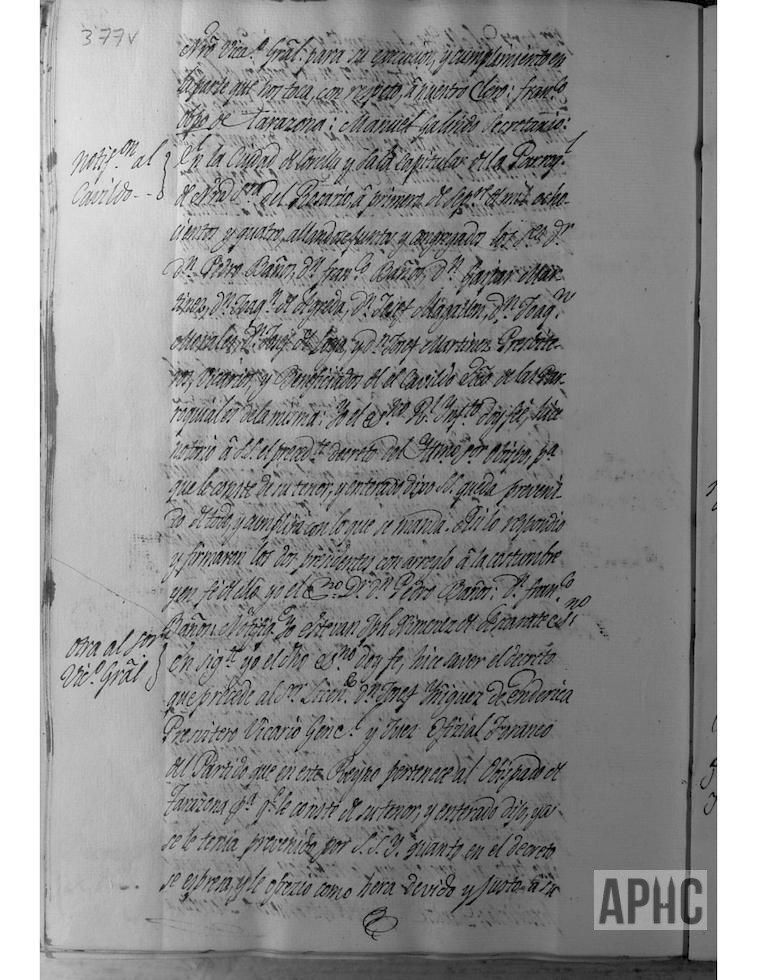 377v
Nro Vica.o Gral. para su execucion, y cumplimiento en
la parte que nos toca, con respeto, â nuestro Clero: Fran.co
obpo de Tarazona: Manuel Galindo Secretario:
Notif.on al
Cavildo
En la Ciudad de Corella y Sala Capitular de la Parroq.l
de Ntra Sra del Rosario â primero de Sep.re de mil ocho-
cientos y quatro, allandose juntos y congregados los S.res D.r
D.n Pedro Baños, D.n Fran.co Baños, D.n Gaspar Mar-
tinez, D.n Joaq.n de Agreda, D.n Josef Magallon, D.n Joaq.n
Morales, D.n Josef de Luna, y D.n Josef Martinez Presbite-
ros, Vicarios, y Beneficiados de el Cavildo Ecco de las Par-
roquiales de la misma: Yo el Esno R.l Infto doy fe, hice
notorio â S.S. el preced.te decreto del Ittmo, por Obispo, p.a
que le conste de su tenor, y enterado dixo S.S. queda preveni-
do de todo, y cumplira con lo que se manda. Asi lo respondio
y firmaron los dos presidentes con arreglo â la costumbre
y en fe de ello yo el Esno D.r D.n Pedro Baños: D.n Fran.co
Baños: Notifiq.e Yo Estevan Jph Ximenez de Esparate es.no
Otra al Sor
Vic.o Gral
En sig.te yo el dho es.no doy fe, hice saver el decreto
que precede al S.or Licen.do D.n Josef Yñiguez de Enderica
Presvitero Vicario Gene.l y Juez Ofizial Foraneo
del Partido que en este Reyno pertenece al Obispado de
Tarazona p.a q.e le conste de su tenor, y enterado dijo, ya
se le tenia prevenido por S.S.Y. quanto en el decreto
se espresa, y le ofrecio como hera devido y justo â su
APHC